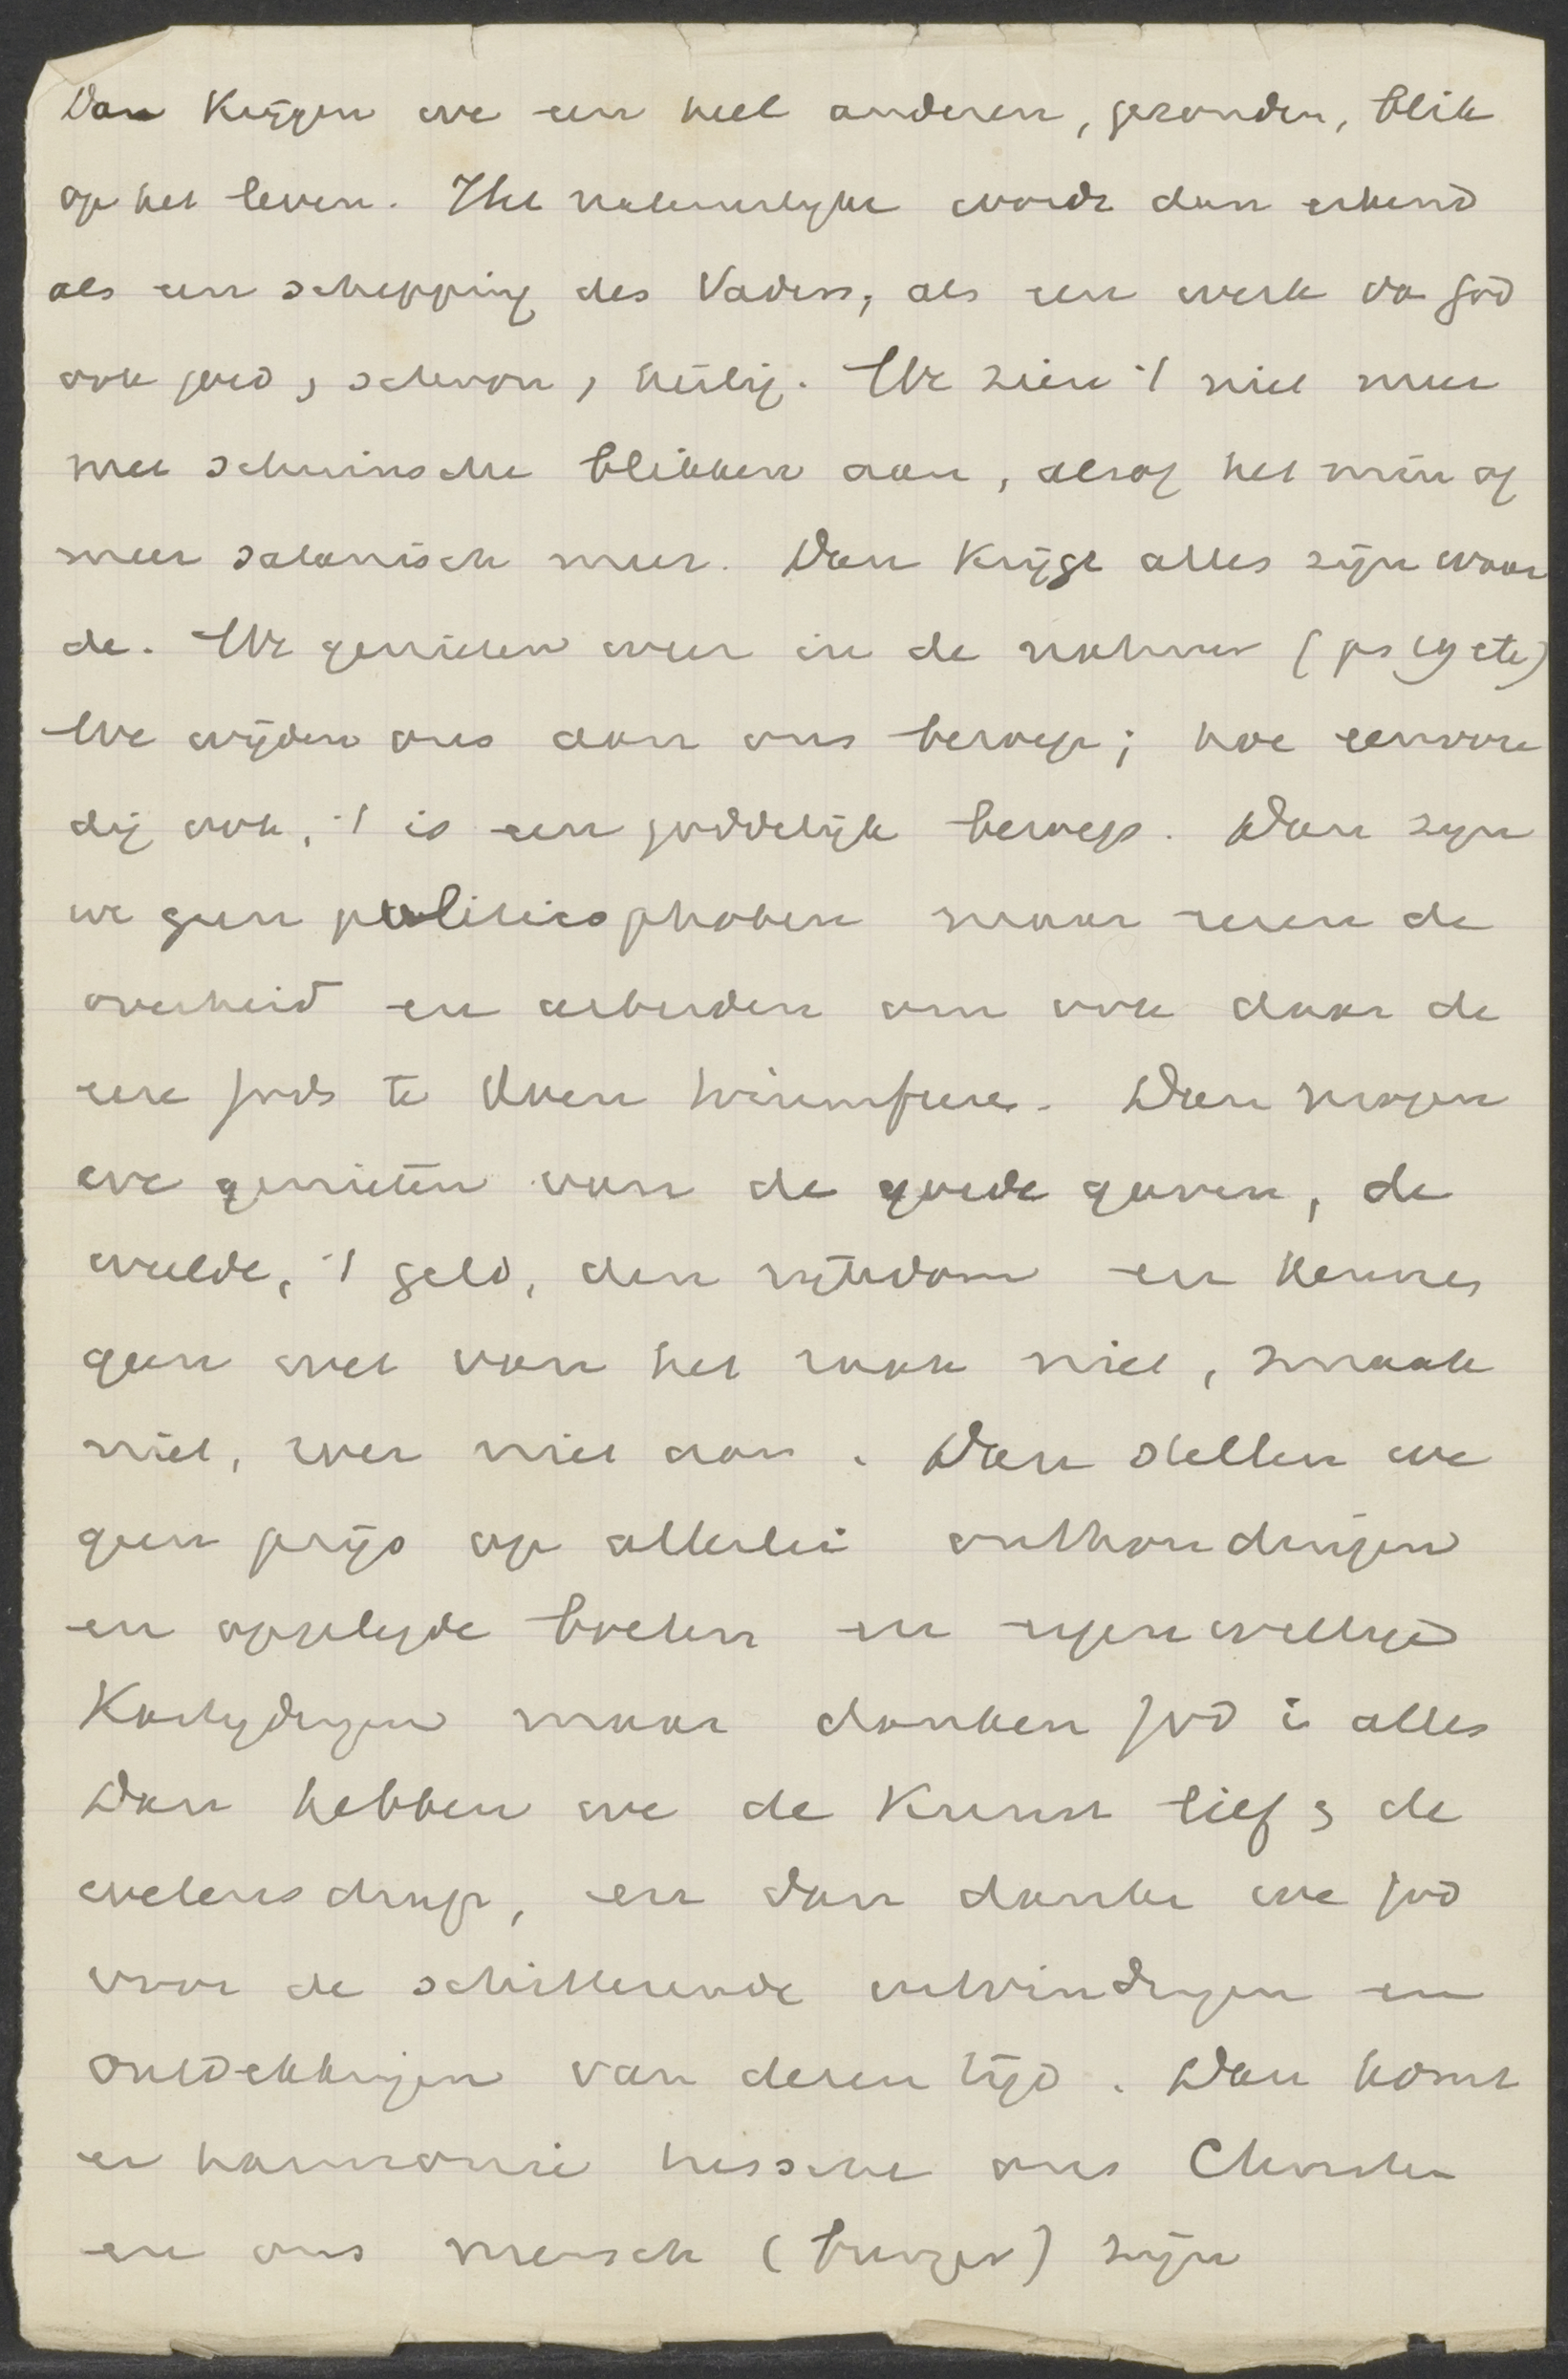 Dan krijgen we een heel anderen, gezonden, blik
op het leven. Het natuurlijke wordt dan erkend
als een schepping des Vaders, als een werk va God
ook goed, schoon, heilig. We zien 't niet meer
met schuinsche blikken aan, alsof het min of
meer satanisch meer. Dan krijgt alles zijn waar
de. We genieten weer in de natuur (ps 19 etc)
We wijden ons aan ons beroep; hoe eenvou
dig ook, 't is een goddelijk beroep. Dan zijn
we geen politicophoben maar eeren de
overheid en arbeiden om ook daar de
eere Gods te doen triumfeere. Dan mogen
we genieten van de goede gaven, de
weelde, 't geld, den rijkdom en kennen
geen wet van het raak niet, smaak
niet, roer niet aan. Dan stellen we
geen prijs op allerlei onthoudingen
en opgelegde boeten en eigenwillige
kastijdingen maar danken God i alles
Dan hebben we de kunst lief & de
wetenschap, en dan danke we God
voor de schitterende uitvindingen en
ontdekkingen van dezen tijd. Dan komt
er harmonie tussche ons Christen
en ons mensch (burger) zijn